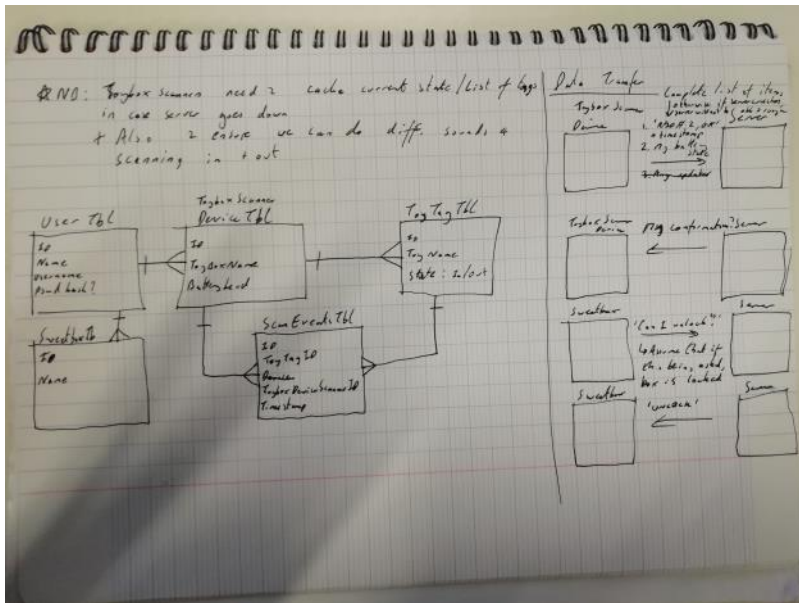 NB: Toybox Scanner need 2 cache current state/List of tags
in case server goes down
+ Also 2 ensure we can do diff. sounds 4
scanning in + out
User Tbl
ID
Name
username
Pswd hash?
Toybox Scanner
Device Tbl
ID
ToyBoxName
Battery Level
Toy Tag Tbl
ID
Toy Name
State: In/Out
SweetboxTb
ID
Name
Scan Events Tbl
ID
Toy Tag ID
Device
ToyboxDeviceScannerID
Timestamp
Data Transfer
Complete list of items
Toybox Scanner
Device
Server
+ timestamp
2. My battery
state
3. Any updates
Toybox Scanner
Device
Msg confirmation?
Server
Sweetbox
'Can I unlock?'
Server
Assume that if
this being asked,
box is locked
Sweetbox
'unlock'
Server